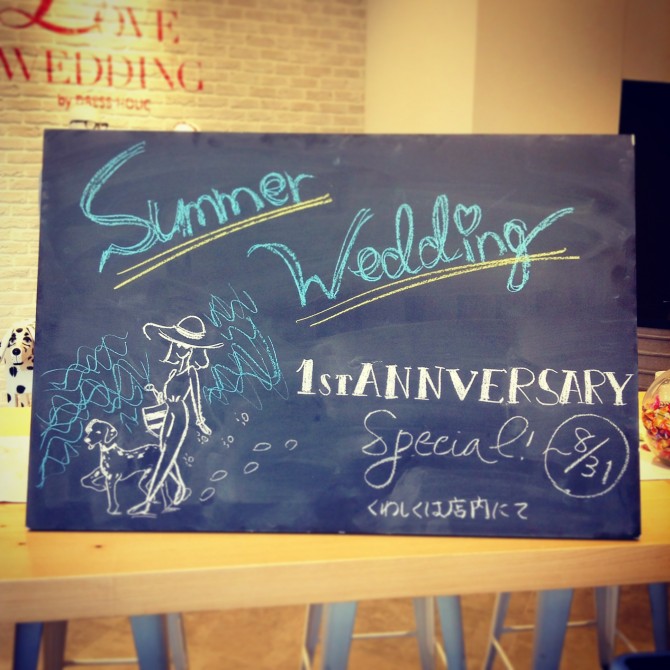 LOVE
WEDDING
by DRESS HOLIC
Summer
Wedding
1ST ANNVERSARY
Special! ~8/31
くわしくは店内にて